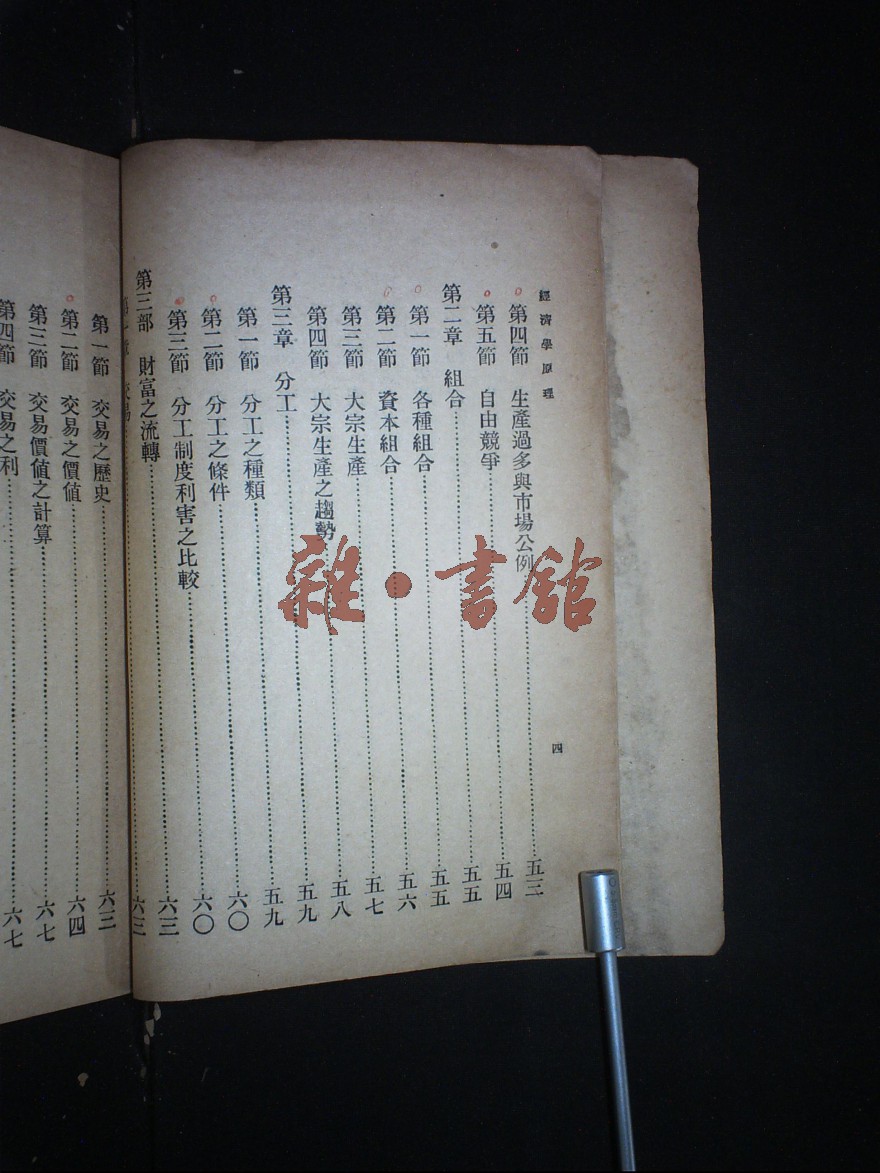 經濟學原理
四
第四節 生產過多與市場公例……五三
第五節 自由競爭……五四
第二章 組合……五五
第一節 各種組合……五五
第二節 資本組合……五六
第三節 大宗生產……五七
第四節 大宗生產之趨勢……五八
第三章 分工……五九
第一節 分工之種類……五九
第二節 分工之條件……六〇
第三節 分工制度利害之比較……六〇
第三部 財富之流轉……六三
章 交易……六三
第一節 交易之歷史……六三
第二節 交易之價值……六四
第三節 交易價值之計算……六七
第四節 交易之利……六七
雜·書館